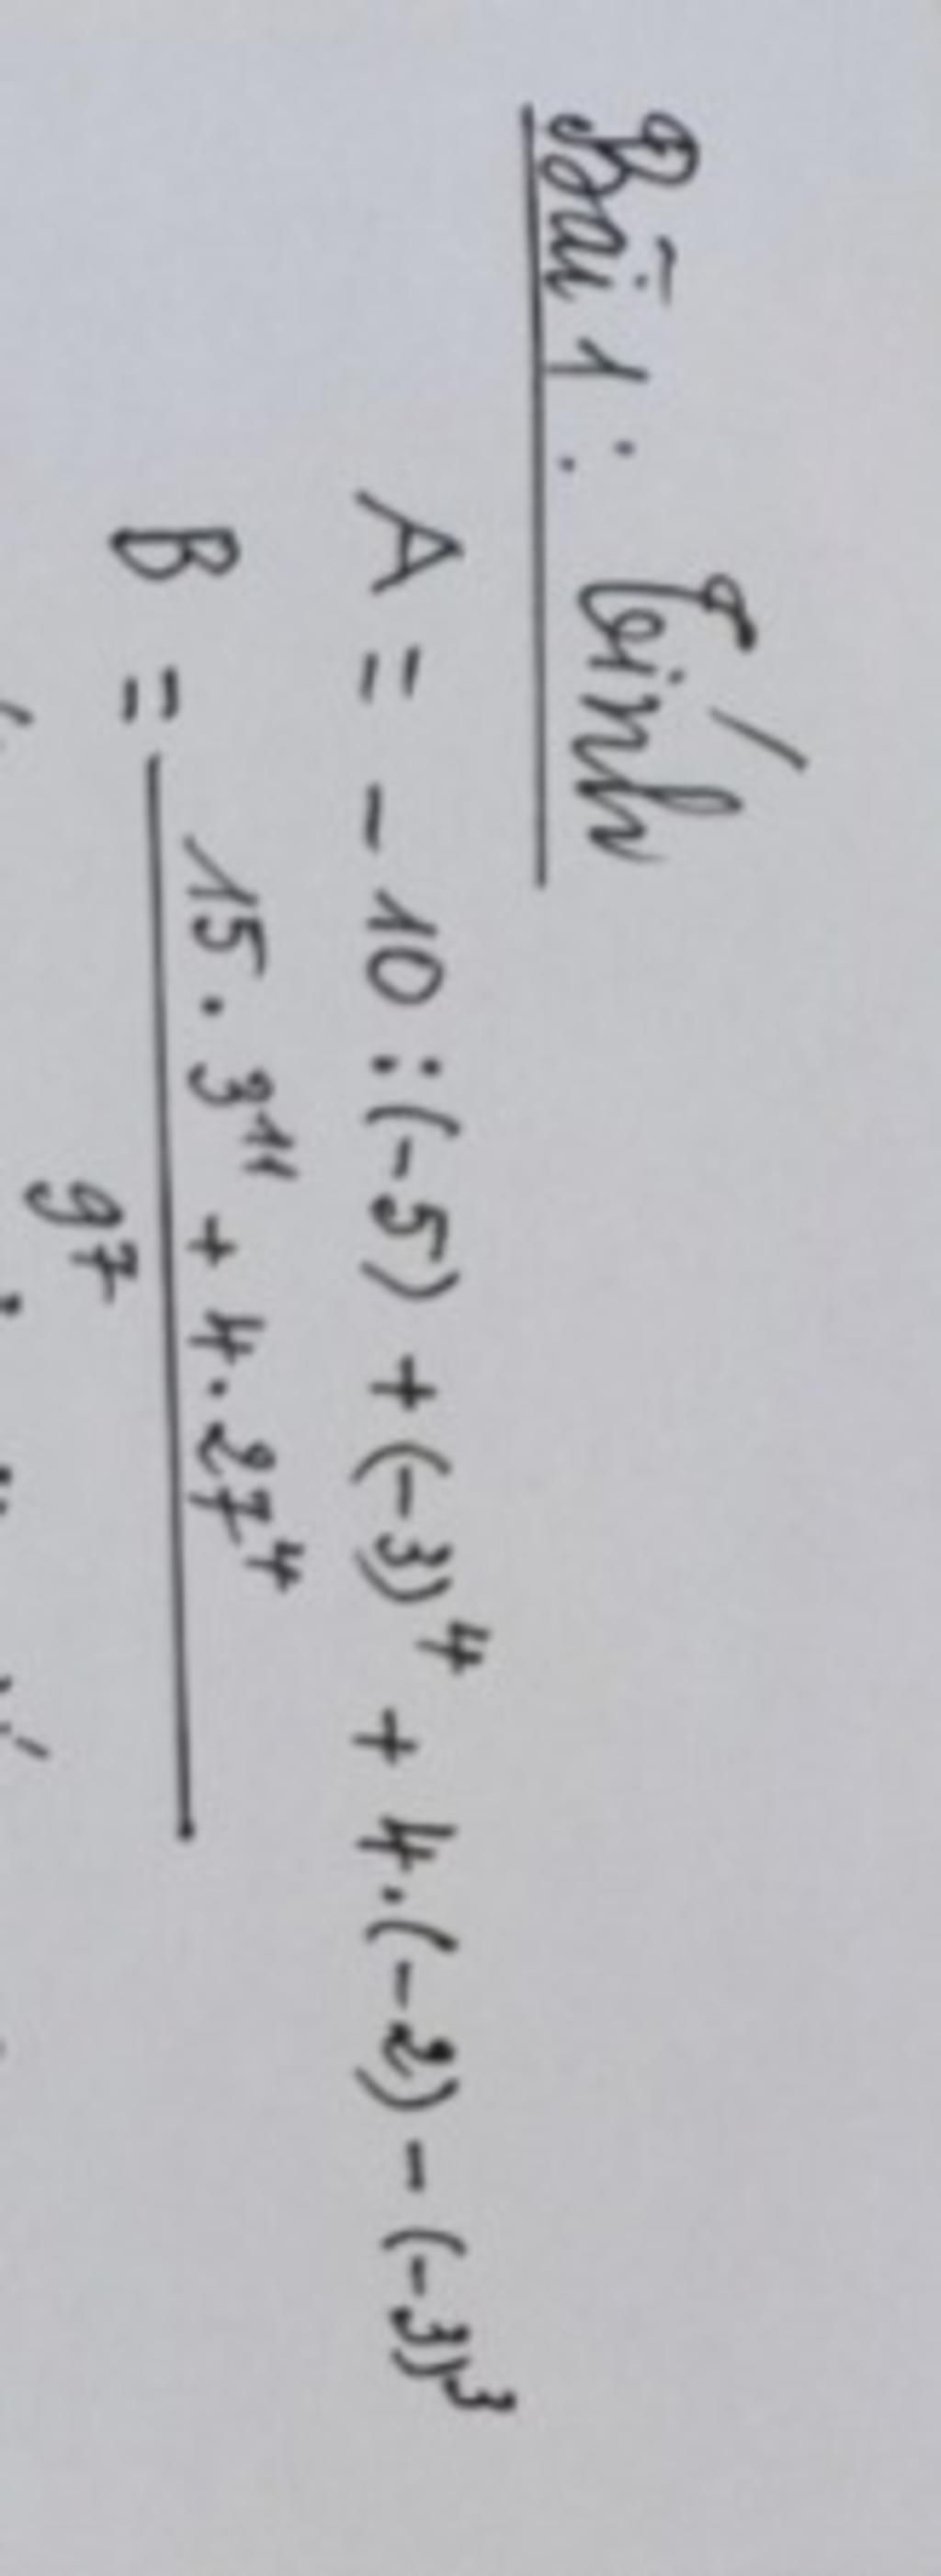 Bài 1: Tính
A = - 10 : (-5) + (-3)⁴ + 4.(-2) - (-3)³
B = 15 . 3¹¹ + 4 . 27⁴
9⁷